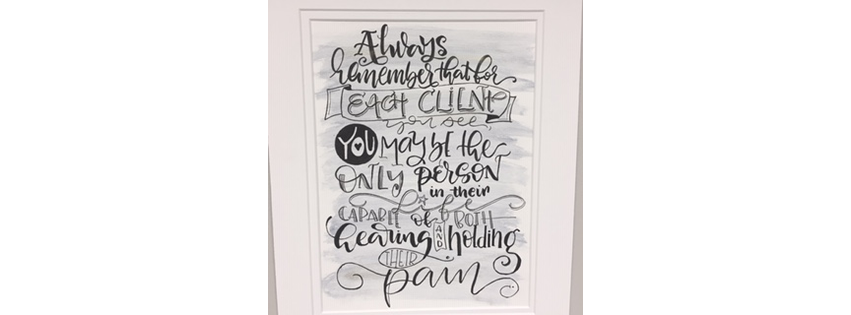 Always
remember that for
EACH CLIENT
you see,
YOU MAY BE the
ONLY PERSON
in their
life
CAPABLE of BOTH
hearing AND holding
THEIR
pain